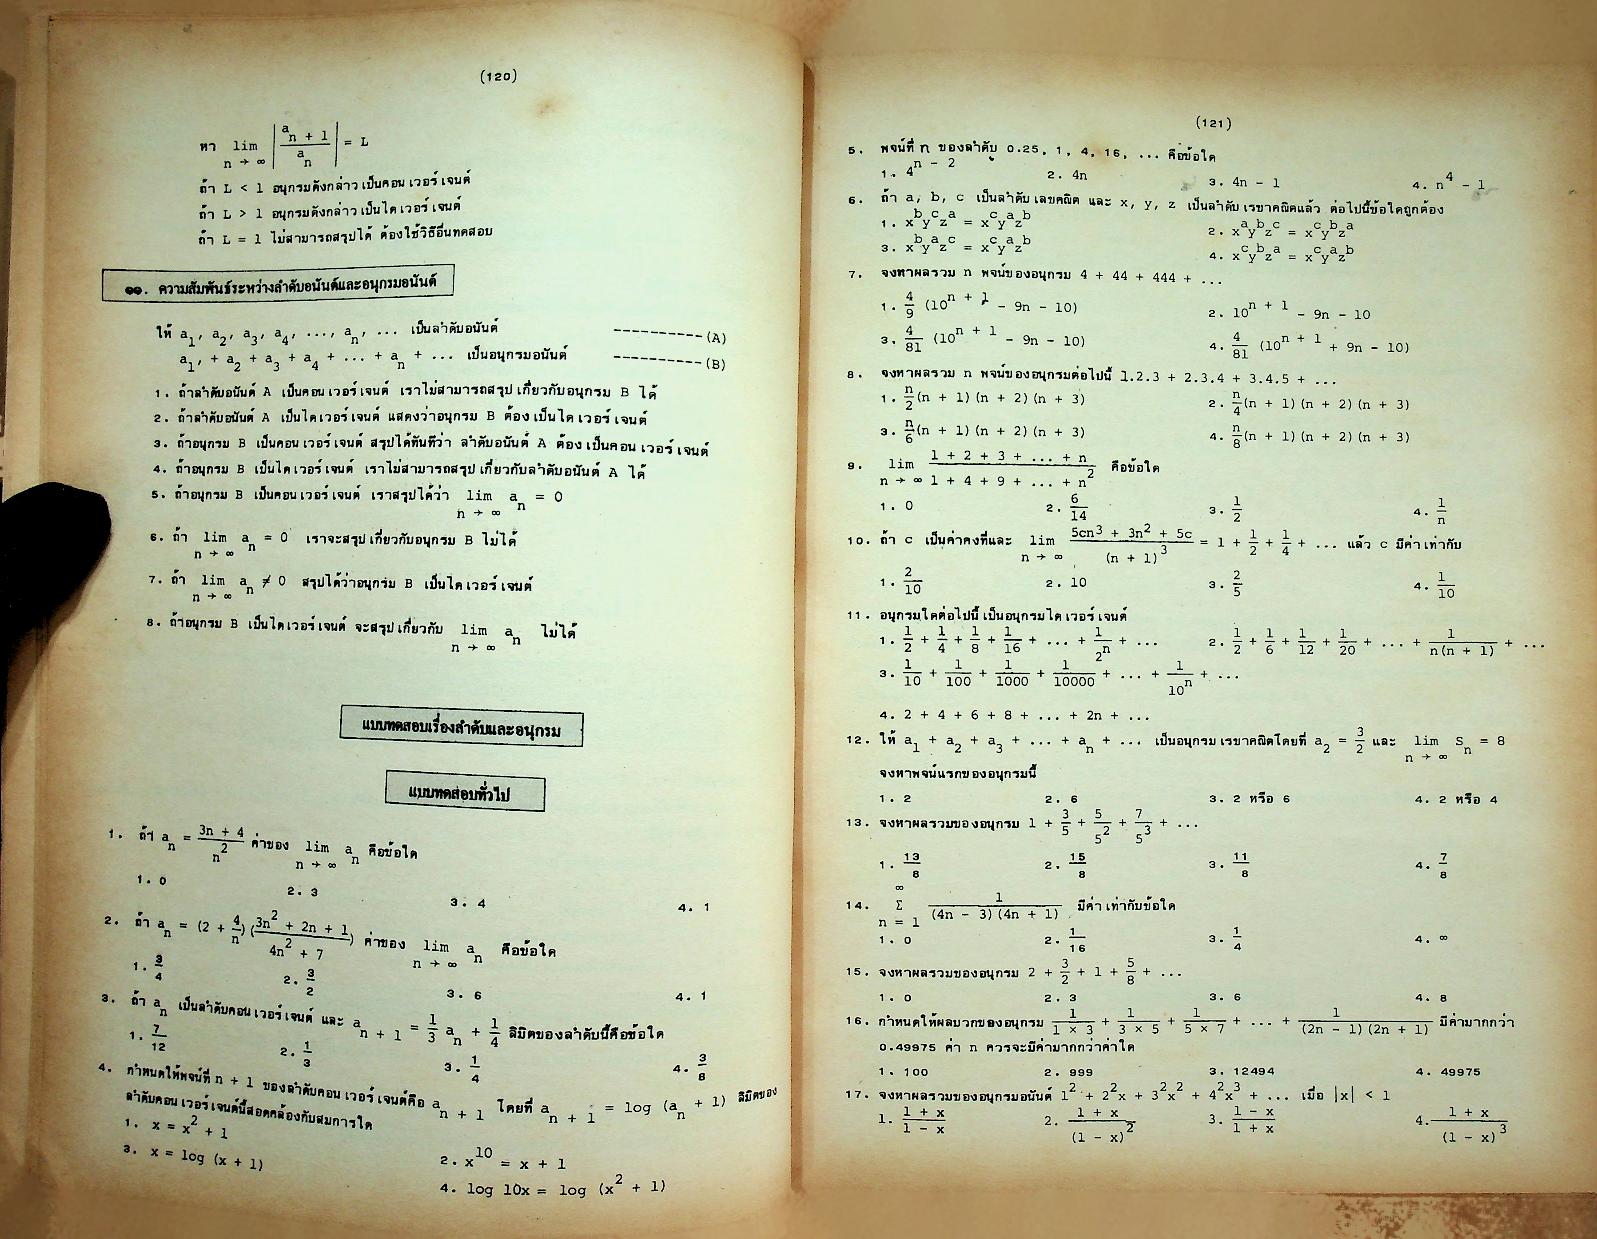 (120)
หา lim n → ∞ | a n + 1 / a n | = L
ถ้า L < 1 อนุกรมดังกล่าวเป็นคอนเวอร์เจนต์
ถ้า L > 1 อนุกรมดังกล่าวเป็นไดเวอร์เจนต์
ถ้า L = 1 ไม่สามารถสรุปได้ ต้องใช้วิธีอื่นทดสอบ
๑๑. ความสัมพันธ์ระหว่างลำดับอนันต์และอนุกรมอนันต์
ให้ a₁, a₂, a₃, a₄, ..., aₙ, ... เป็นลำดับอนันต์ ----------(A)
a₁, + a₂ + a₃ + a₄ + ... + aₙ + ... เป็นอนุกรมอนันต์ ----------(B)
1. ถ้าลำดับอนันต์ A เป็นคอนเวอร์เจนต์ เราไม่สามารถสรุปเกี่ยวกับอนุกรม B ได้
2. ถ้าลำดับอนันต์ A เป็นไดเวอร์เจนต์ แสดงว่าอนุกรม B ต้องเป็นไดเวอร์เจนต์
3. ถ้าอนุกรม B เป็นคอนเวอร์เจนต์ สรุปได้ทันทีว่า ลำดับอนันต์ A ต้องเป็นคอนเวอร์เจนต์
4. ถ้าอนุกรม B เป็นไดเวอร์เจนต์ เราไม่สามารถสรุปเกี่ยวกับลำดับอนันต์ A ได้
5. ถ้าอนุกรม B เป็นคอนเวอร์เจนต์ เราสรุปได้ว่า lim n → ∞ aₙ = 0
6. ถ้า lim n → ∞ aₙ = 0 เราจะสรุปเกี่ยวกับอนุกรม B ไม่ได้
7. ถ้า lim n → ∞ aₙ ≠ 0 สรุปได้ว่าอนุกรม B เป็นไดเวอร์เจนต์
8. ถ้าอนุกรม B เป็นไดเวอร์เจนต์ จะสรุปเกี่ยวกับ lim n → ∞ aₙ ไม่ได้
แบบทดสอบเรื่องลำดับและอนุกรม
แบบทดสอบทั่วไป
1. ถ้า aₙ = (3n + 4)/n² ค่าของ lim n → ∞ aₙ คือข้อใด
1. 0 2. 3 3. 4 4. 1
2. ถ้า aₙ = (2 + 4/n) ((3n² + 2n + 1)/(4n² + 7)) ค่าของ lim n → ∞ aₙ คือข้อใด
1. 3/4 2. 3/2 3. 6 4. 1
3. ถ้า aₙ เป็นลำดับคอนเวอร์เจนต์ และ a n + 1 = 1/3 aₙ + 1/4 ลิมิตของลำดับนี้คือข้อใด
1. 7/12 2. 1/3 3. 1/4 4. 3/8
4. กำหนดให้พจน์ที่ n + 1 ของลำดับคอนเวอร์เจนต์คือ a n + 1 โดยที่ a n + 1 = log (aₙ + 1) ลิมิตของ
ลำดับคอนเวอร์เจนต์นี้สอดคล้องกับสมการใด
1. x = x² + 1 2. x¹⁰ = x + 1
3. x = log (x + 1) 4. log 10x = log (x² + 1)
(121)
5. พจน์ที่ n ของลำดับ 0.25, 1, 4, 16, ... คือข้อใด
1. 4ⁿ⁻² 2. 4n 3. 4n - 1 4. n⁴ - 1
6. ถ้า a, b, c เป็นลำดับเลขคณิต และ x, y, z เป็นลำดับเรขาคณิตแล้ว ต่อไปนี้ข้อใดถูกต้อง
1. x^b y^c z^a = x^c y^a z^b 2. x^a y^b z^c = x^c y^b z^a
3. x^b y^a z^c = x^c y^a z^b 4. x^c y^b z^a = x^c y^a z^b
7. จงหาผลรวม n พจน์ของอนุกรม 4 + 44 + 444 + ...
1. 4/9 (10ⁿ⁺¹ - 9n - 10) 2. 10ⁿ⁺¹ - 9n - 10
3. 4/81 (10ⁿ⁺¹ - 9n - 10) 4. 4/81 (10ⁿ⁺¹ + 9n - 10)
8. จงหาผลรวม n พจน์ของอนุกรมต่อไปนี้ 1.2.3 + 2.3.4 + 3.4.5 + ...
1. n/2 (n + 1)(n + 2)(n + 3) 2. n/4 (n + 1)(n + 2)(n + 3)
3. n/6 (n + 1)(n + 2)(n + 3) 4. n/8 (n + 1)(n + 2)(n + 3)
9. lim n → ∞ (1 + 2 + 3 + ... + n)/(1 + 4 + 9 + ... + n²) คือข้อใด
1. 0 2. 6/14 3. 1/2 4. 1/n
10. ถ้า c เป็นค่าคงที่และ lim n → ∞ (5cn³ + 3n² + 5c)/(n + 1)³ = 1 + 1/2 + 1/4 + ... แล้ว c มีค่าเท่ากับ
1. 2/10 2. 10 3. 2/5 4. 1/10
11. อนุกรมใดต่อไปนี้เป็นอนุกรมไดเวอร์เจนต์
1. 1/2 + 1/4 + 1/8 + 1/16 + ... + 1/2ⁿ + ... 2. 1/2 + 1/6 + 1/12 + 1/20 + ... + 1/n(n + 1) + ...
3. 1/10 + 1/100 + 1/1000 + 1/10000 + ... + 1/10ⁿ + ...
4. 2 + 4 + 6 + 8 + ... + 2n + ...
12. ให้ a₁ + a₂ + a₃ + ... + aₙ + ... เป็นอนุกรมเรขาคณิตโดยที่ a₂ = 3/2 และ lim n → ∞ Sₙ = 8
จงหาพจน์แรกของอนุกรมนี้
1. 2 2. 6 3. 2 หรือ 6 4. 2 หรือ 4
13. จงหาผลรวมของอนุกรม 1 + 3/5 + 5/5² + 7/5³ + ...
1. 13/8 2. 15/8 3. 11/8 4. 7/8
14. ∞ Σ n = 1 1/(4n - 3)(4n + 1) มีค่าเท่ากับข้อใด
1. 0 2. 1/16 3. 1/4 4. ∞
15. จงหาผลรวมของอนุกรม 2 + 3/2 + 1 + 5/8 + ...
1. 0 2. 3 3. 6 4. 8
16. กำหนดให้ผลบวกของอนุกรม 1/(1 × 3) + 1/(3 × 5) + 1/(5 × 7) + ... + 1/(2n - 1)(2n + 1) มีค่ามากกว่า
0.49975 ค่า n ควรจะมีค่ามากกว่าค่าใด
1. 100 2. 999 3. 12494 4. 49975
17. จงหาผลรวมของอนุกรมอนันต์ 1² + 2²x + 3²x² + 4²x³ + ... เมื่อ |x| < 1
1. (1 + x)/(1 - x) 2. (1 + x)/(1 - x)² 3. (1 - x)/(1 + x) 4. (1 + x)/(1 - x)³